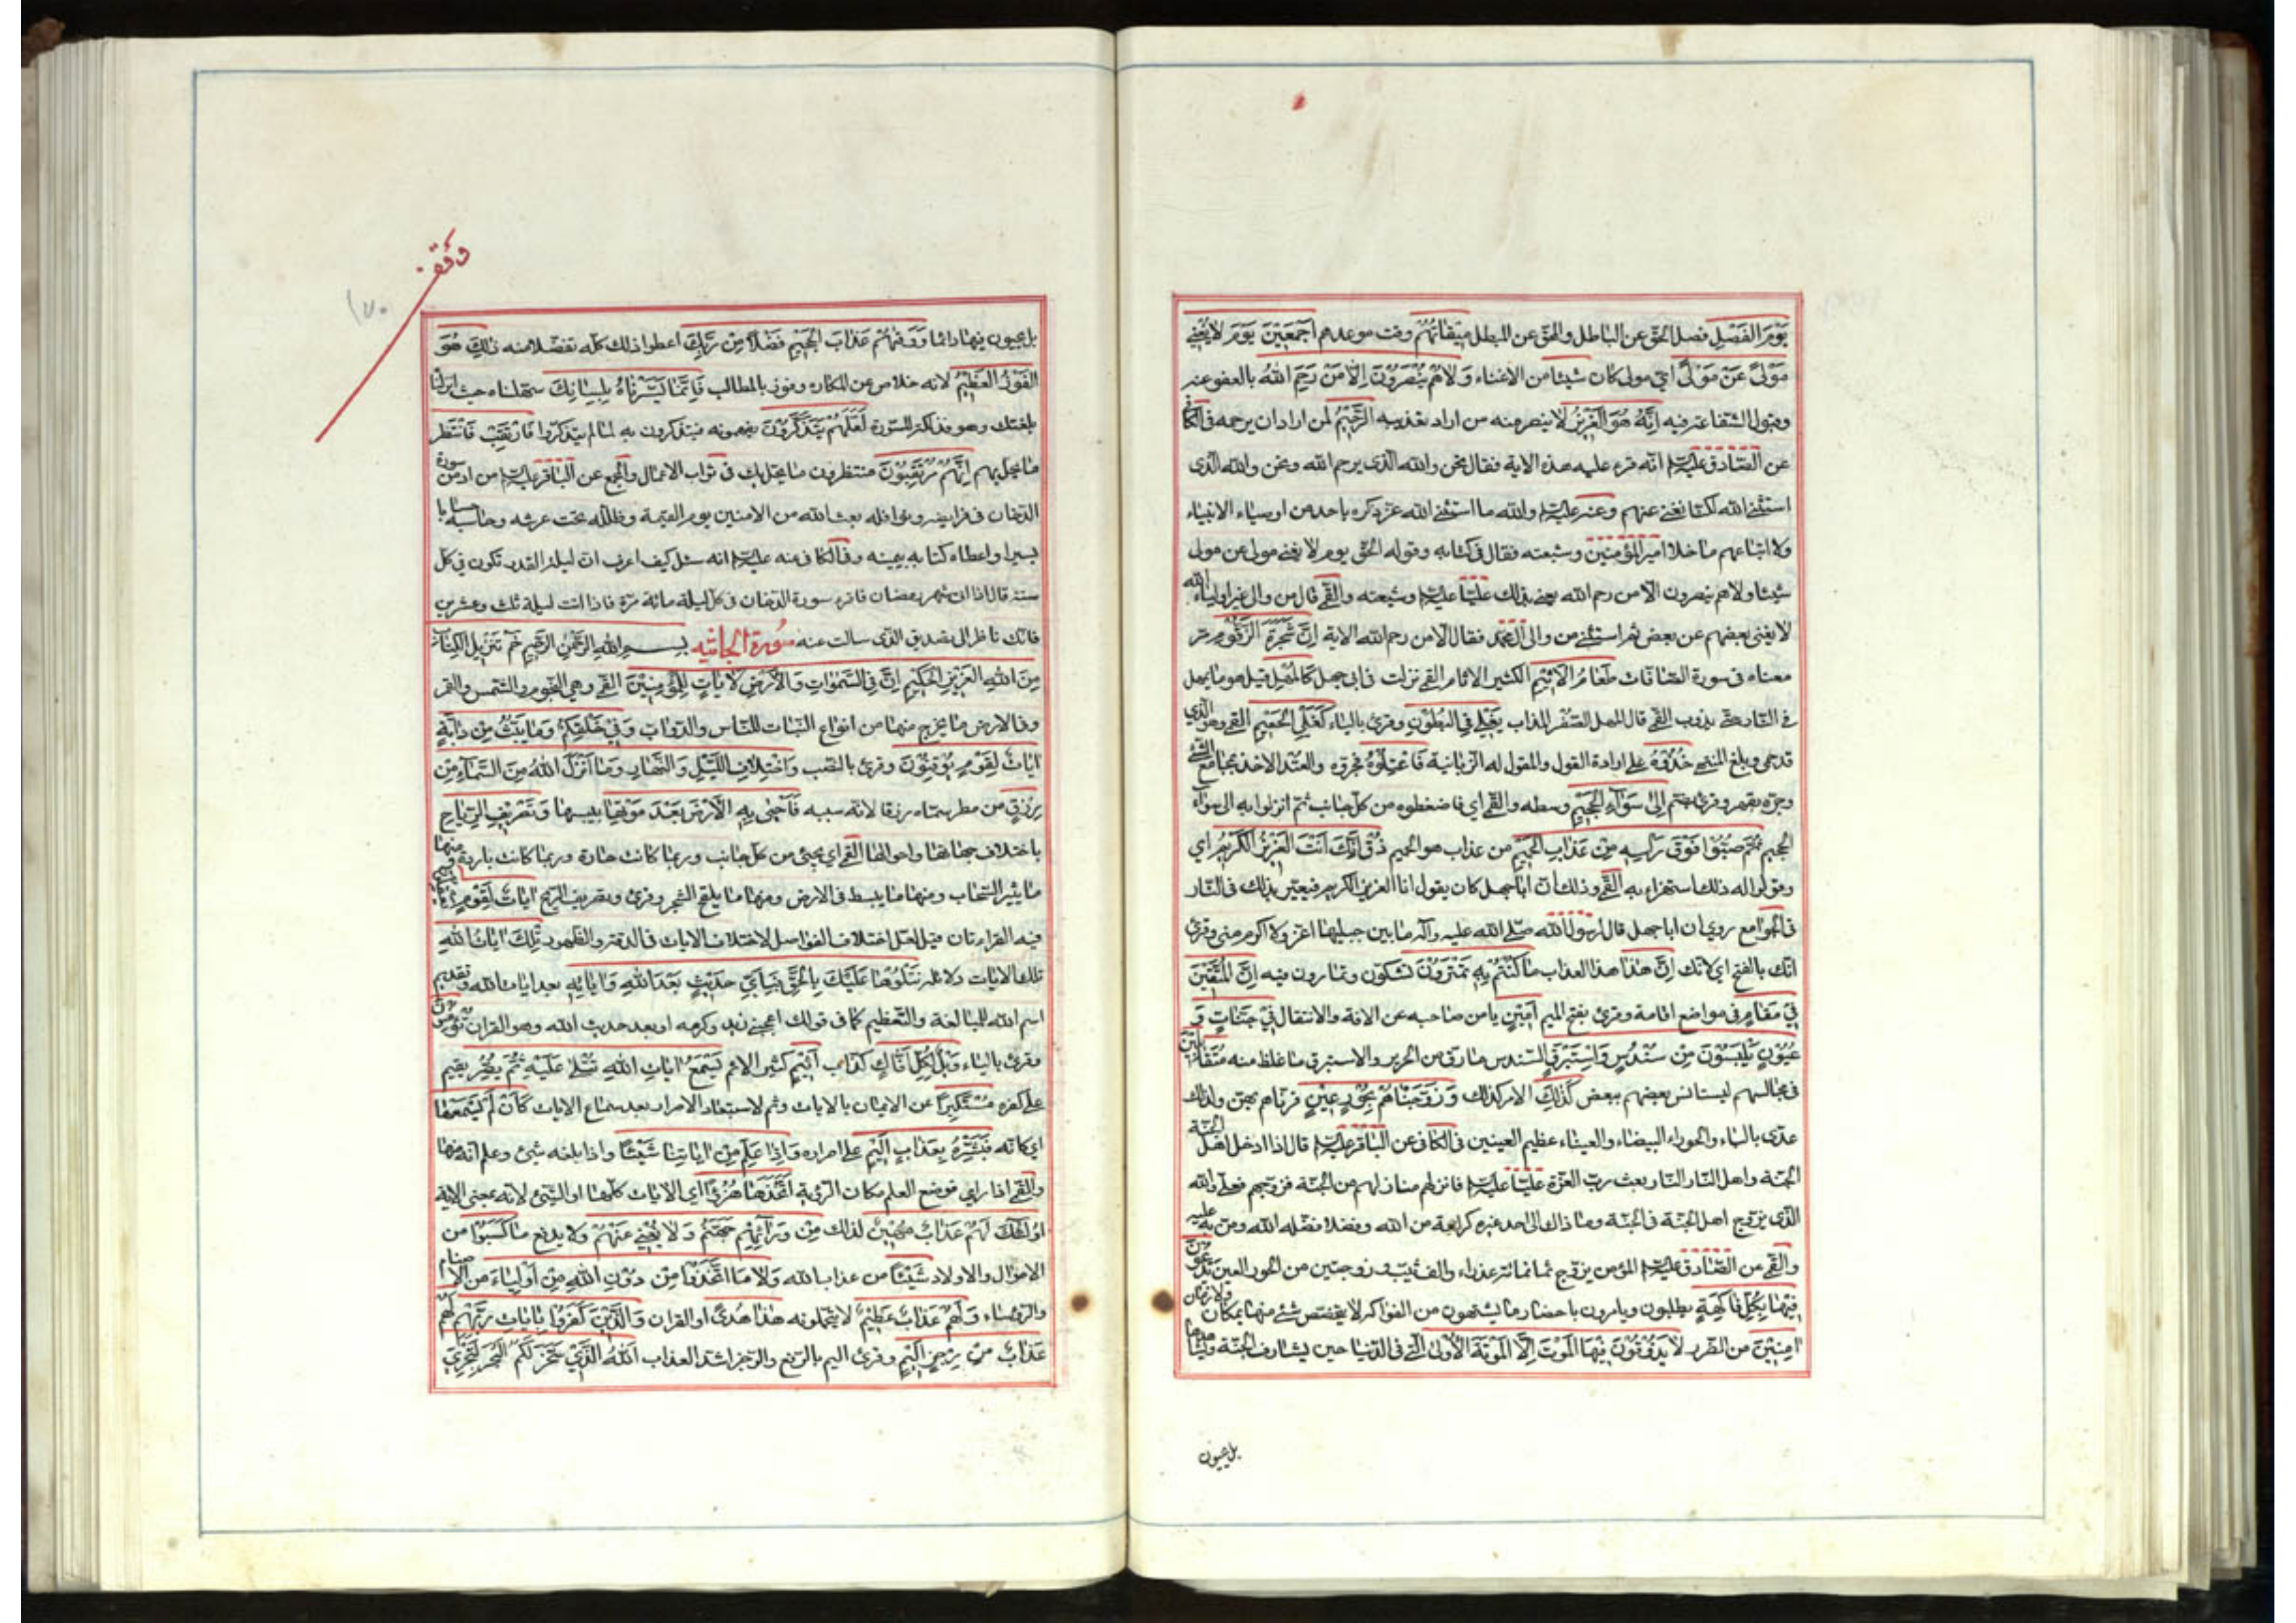 يَوْمَ الفَصْلِ فصل الحقّ عن الباطل والمحقّ عن المبطل مِيقاتُهُمْ وقت موعدهم اَجْمَعِيْنَ يَوْمَ لا يُغْنِي
مَوْلىً عَنْ مَوْلىً اي مولى كان شَيْئا من الاغناء وَلا هُمْ يُنْصَرُوْنَ اِلّا مَنْ رَحِمَ اللهُ بالعفو عنه
وقبول الشفاعة فيه اِنَّهُ هُوَ الْعَزِيْزُ لا ينصر منه من اراد تعذيبه الرَّحِيْمُ لمن اراد ان يرحمه في الكافي
عن الصّادق عليه السلام انّه قرء عليه هذه الاية فقال نحن والله الذى يرحم الله ونحن والله الذى
استثنى الله لكنّا نغنى عنهم وعنه عليه السلام والله ما استثنى الله عزّ ذكره باحد من اوصياء الانبياء
ولا اتباعهم ما خلا امير المؤمنين وشيعته فقال فى كتابه وقوله الحقّ يوم لا يغنى مولى عن مولى
شيئا ولا هم ينصرون الّا من رحم الله يعنى بذلك عليّا عليه السلام وشيعته والقمّي قال من والى غير اولياء الله
لا يغنى بعضهم عن بعض ثم استثنى من والى آل محمّد فقال الّا من رحم الله الاية اِنَّ شَجَرَةَ الزَّقُّوْمِ مرّ
معناه فى سورة الصّافات طَعامُ الْاَثِيْمِ الكثير الاثام القمّي نزلت فى ابى جهل كَالْمُهْلِ قيل هو ما يمهل
في النّار حتّى يذوب القمّي قال المهل الصّفر المذاب يَغْلِى فِى الْبُطُوْنِ وقرئ بالياء كَغَلْىِ الْحَمِيْمِ القمّي وهو الّذي
قد حمى وبلغ المنتهى خُذُوْهُ على ارادة القول والمقول له الزّبانية فَاعْتِلُوْهُ فجرّوه والعتل الاخذ بمجامع الشّئ
وجرّه بقهر وقرئ بضم التّاء اِلى سَوآءِ الْجَحِيْمِ وسطه والقمّي اي فاضغطوه من كلّ جانب ثمّ انزلوا به الى سوآء
الجحيم ثُمَّ صُبُّوْا فَوْقَ رَأْسِهِ مِنْ عَذابِ الْحَمِيْمِ من عذاب هو الحميم ذُقْ اِنَّكَ اَنْتَ الْعَزِيْزُ الْكَرِيْمُ اي
وقولوا له ذلك استهزاء به القمّي وذلك انّ ابا جهل كان يقول انا العزيز الكريم فيعيّر بذلك فى النّار
فى الجوامع روى ان ابا جهل قال لرسول الله صلّى الله عليه وآله ما بين جبليها اعزّ ولا اكرم منى وقرئ
انّك بالفتح اي لانك اِنَّ هٰذا هذا العذاب ما كُنْتُمْ بِهِ تَمْتَرُوْنَ تشكّون وتمارون فيه اِنَّ الْمُتَّقِيْنَ
فِيْ مَقامٍ فى مواضع اقامة وقرئ بفتح الميم اَمِيْنٍ يأمن صاحبه عن الافة والانتقال فِيْ جَنّاتٍ وَ
عُيُوْنٍ يَلْبَسُوْنَ مِنْ سُنْدُسٍ وَاِسْتَبْرَقٍ السّندس ما رقّ من الحرير والاستبرق ما غلظ منه مُتَقابِلِيْنَ
فى مجالسهم ليستانس بعضهم ببعض كَذٰلِكَ الامر كذلك وَزَوَّجْناهُمْ بِحُوْرٍ عِيْنٍ قرنّاهم بهنّ ولذلك
عدّى بالباء والحوراء البيضاء والعيناء عظيم العينين فى الكافى عن الباقر عليه السلام قال اذا ادخل اهل الجنّة
الجنّة واهل النّار النّار بعث ربّ العزّة عليّا عليه السلام فانزلهم منازلهم من الجنّة فزوّجهم فعلىّ والله
الّذى يزوّج اهل الجنّة فى الجنّة وما ذاك الى احد غيره كرامة من الله وفضلا فضّله الله ومنّ به عليه
والقمّي عن الصّادق عليه السلام المؤمن يزوّج ثمانمائة عذراء والف ثيّب وزوجتين من الحور العين يَدْعُوْنَ
فِيْها بِكُلِّ فاكِهَةٍ يطلبون ويامرون باحضار ما يشتهون من الفواكه لا يتخصّص شئ منها بمكان ولا زمان
اٰمِنِيْنَ من الضّرر لا يَذُوْقُوْنَ فِيْها الْمَوْتَ اِلَّا الْمَوْتَةَ الْاُوْلىٰ الّتى فى الدّنيا حين يشارف الجنّة ويشاهدها
بل يحيون
وقف
١٧٠
بل يحيون فيها دائما وَوَقٰيهُمْ عَذابَ الْجَحِيْمِ فَضْلًا مِنْ رَبِّكَ اعطوا ذلك كلّه تفضّلا منه ذٰلِكَ هُوَ
الْفَوْزُ الْعَظِيْمُ لانه خلاص عن المكاره وفوز بالمطالب فَاِنَّما يَسَّرْناهُ بِلِسانِكَ سهّلناه حيث انزلناه
بلغتك وهو فذلكة للسّورة لَعَلَّهُمْ يَتَذَكَّرُوْنَ يفهمونه فيتذكرون به لمّا لم يتذكّروا فَارْتَقِبْ فانتظر
ما يحلّ بهم اِنَّهُمْ مُرْتَقِبُوْنَ منتظرون ما يحلّ بك فى ثواب الاعمال والمجمع عن الباقر عليه السلام من ادمن سورة
الدّخان فى فرايضه ونوافله بعثه الله من الامنين يوم القيمة وظلّله تحت عرشه وحاسبه حسابا
يسيرا واعطاه كتابه بيمينه وفى الكافى عنه عليه السلام انه سئل كيف اعرف انّ ليلة القدر تكون فى كلّ
سنة قال اذا اتى شهر رمضان فاقرء سورة الدّخان فى كلّ ليلة مائة مرّة فاذا اتت ليلة ثلث وعشرين
فانّك ناظر الى تصديق الّذى سالت عنه سورة الجاثيه بسم الله الرّحمٰن الرّحيم حٰمٓ تَنْزِيْلُ الْكِتابِ
مِنَ اللهِ الْعَزِيْزِ الْحَكِيْمِ اِنَّ فِى السَّمٰواتِ وَالْاَرْضِ لَاٰياتٍ لِلْمُؤْمِنِيْنَ القمّي وهي النّجوم والشّمس والقمر
وفى الارض ما يخرج منها من انواع النّبات للنّاس والدّوابّ وَفِيْ خَلْقِكُمْ وَما يَبُثُّ مِنْ دابَّةٍ
اٰياتٌ لِقَوْمٍ يُوْقِنُوْنَ وقرئ بالنّصب وَاخْتِلافِ اللَّيْلِ وَالنَّهارِ وَما اَنْزَلَ اللهُ مِنَ السَّمآءِ مِنْ
رِزْقٍ من مطر سمّاه رزقا لانه سببه فَاَحْيٰى بِهِ الْاَرْضَ بَعْدَ مَوْتِها يبسها وَتَصْرِيْفِ الرِّياحِ
باختلاف جهاتها واحوالها القمّي اي يجيئ من كلّ جانب وربما كانت حارّة وربما كانت باردة ومنها
ما يثير السّحاب ومنها ما يبسط فى الارض ومنها ما يلقح الشّجر وقرئ وتصريف الرّيح اٰياتٌ لِقَوْمٍ يَعْقِلُوْنَ
فيه القراءتان قيل لعلّ اختلاف الفواصل لاختلاف الايات فى الدقّة والظّهور تِلْكَ اٰياتُ اللهِ
تلك الايات دلائله نَتْلُوْها عَلَيْكَ بِالْحَقِّ فَبِاَيِّ حَدِيْثٍ بَعْدَ اللهِ وَاٰياتِهِ بعد ايات الله وتقديم
اسم الله للمبالغة والتّعظيم كما فى قولك اعجبنى زيد وكرمه او بعد حديث الله وهو القران يُؤْمِنُوْنَ
وقرئ بالتاء وَيْلٌ لِكُلِّ اَفّاكٍ كذّاب اَثِيْمٍ كثير الاثم يَسْمَعُ اٰياتِ اللهِ تُتْلىٰ عَلَيْهِ ثُمَّ يُصِرُّ يقيم
على كفره مُسْتَكْبِرًا عن الايمان بالايات وثم لاستبعاد الاصرار بعد سماع الايات كَاَنْ لَمْ يَسْمَعْها
اى كانّه فَبَشِّرْهُ بِعَذابٍ اَلِيْمٍ على اصراره وَاِذا عَلِمَ مِنْ اٰياتِنا شَيْئًا واذا بلغه شئ وعلم انّه منها
والقمّي اذا راى فوضع العلم مكان الرّؤية اتَّخَذَها هُزُوًا اي الايات كلّها او الشّئ لانه بمعنى الاية
اُولٰئِكَ لَهُمْ عَذابٌ مُهِيْنٌ لذلك مِنْ وَرآئِهِمْ جَهَنَّمُ وَلا يُغْنِىْ عَنْهُمْ ولا يدفع ما كَسَبُوْا من
الاموال والاولاد شَيْئًا من عذاب الله وَلا مَا اتَّخَذُوْا مِنْ دُوْنِ اللهِ مِنْ اَوْلِيآءَ من الاصنام
والرّؤساء وَلَهُمْ عَذابٌ عَظِيْمٌ لا يتحمّلونه هٰذا هُدًى اي القران وَالَّذِيْنَ كَفَرُوْا بِاٰياتِ رَبِّهِمْ لَهُمْ
عَذابٌ مِنْ رِجْزٍ اَلِيْمٍ وقرئ اليم بالرّفع والرّجز اشدّ العذاب اَللهُ الَّذِيْ سَخَّرَ لَكُمُ الْبَحْرَ لِتَجْرِىَ